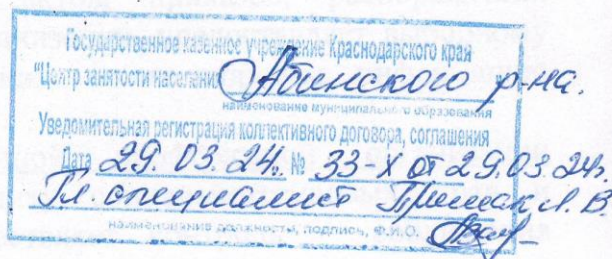 Государственное казенное учреждение Краснодарского края
"Центр занятости населения Абинского р-на.
наименование муниципального образования
Уведомительная регистрация коллективного договора, соглашения
Дата 29.03.24. № 33-х от 29.03.24г.
Гл. специалист А.В.
наименование должности, подпись, Ф.И.О.